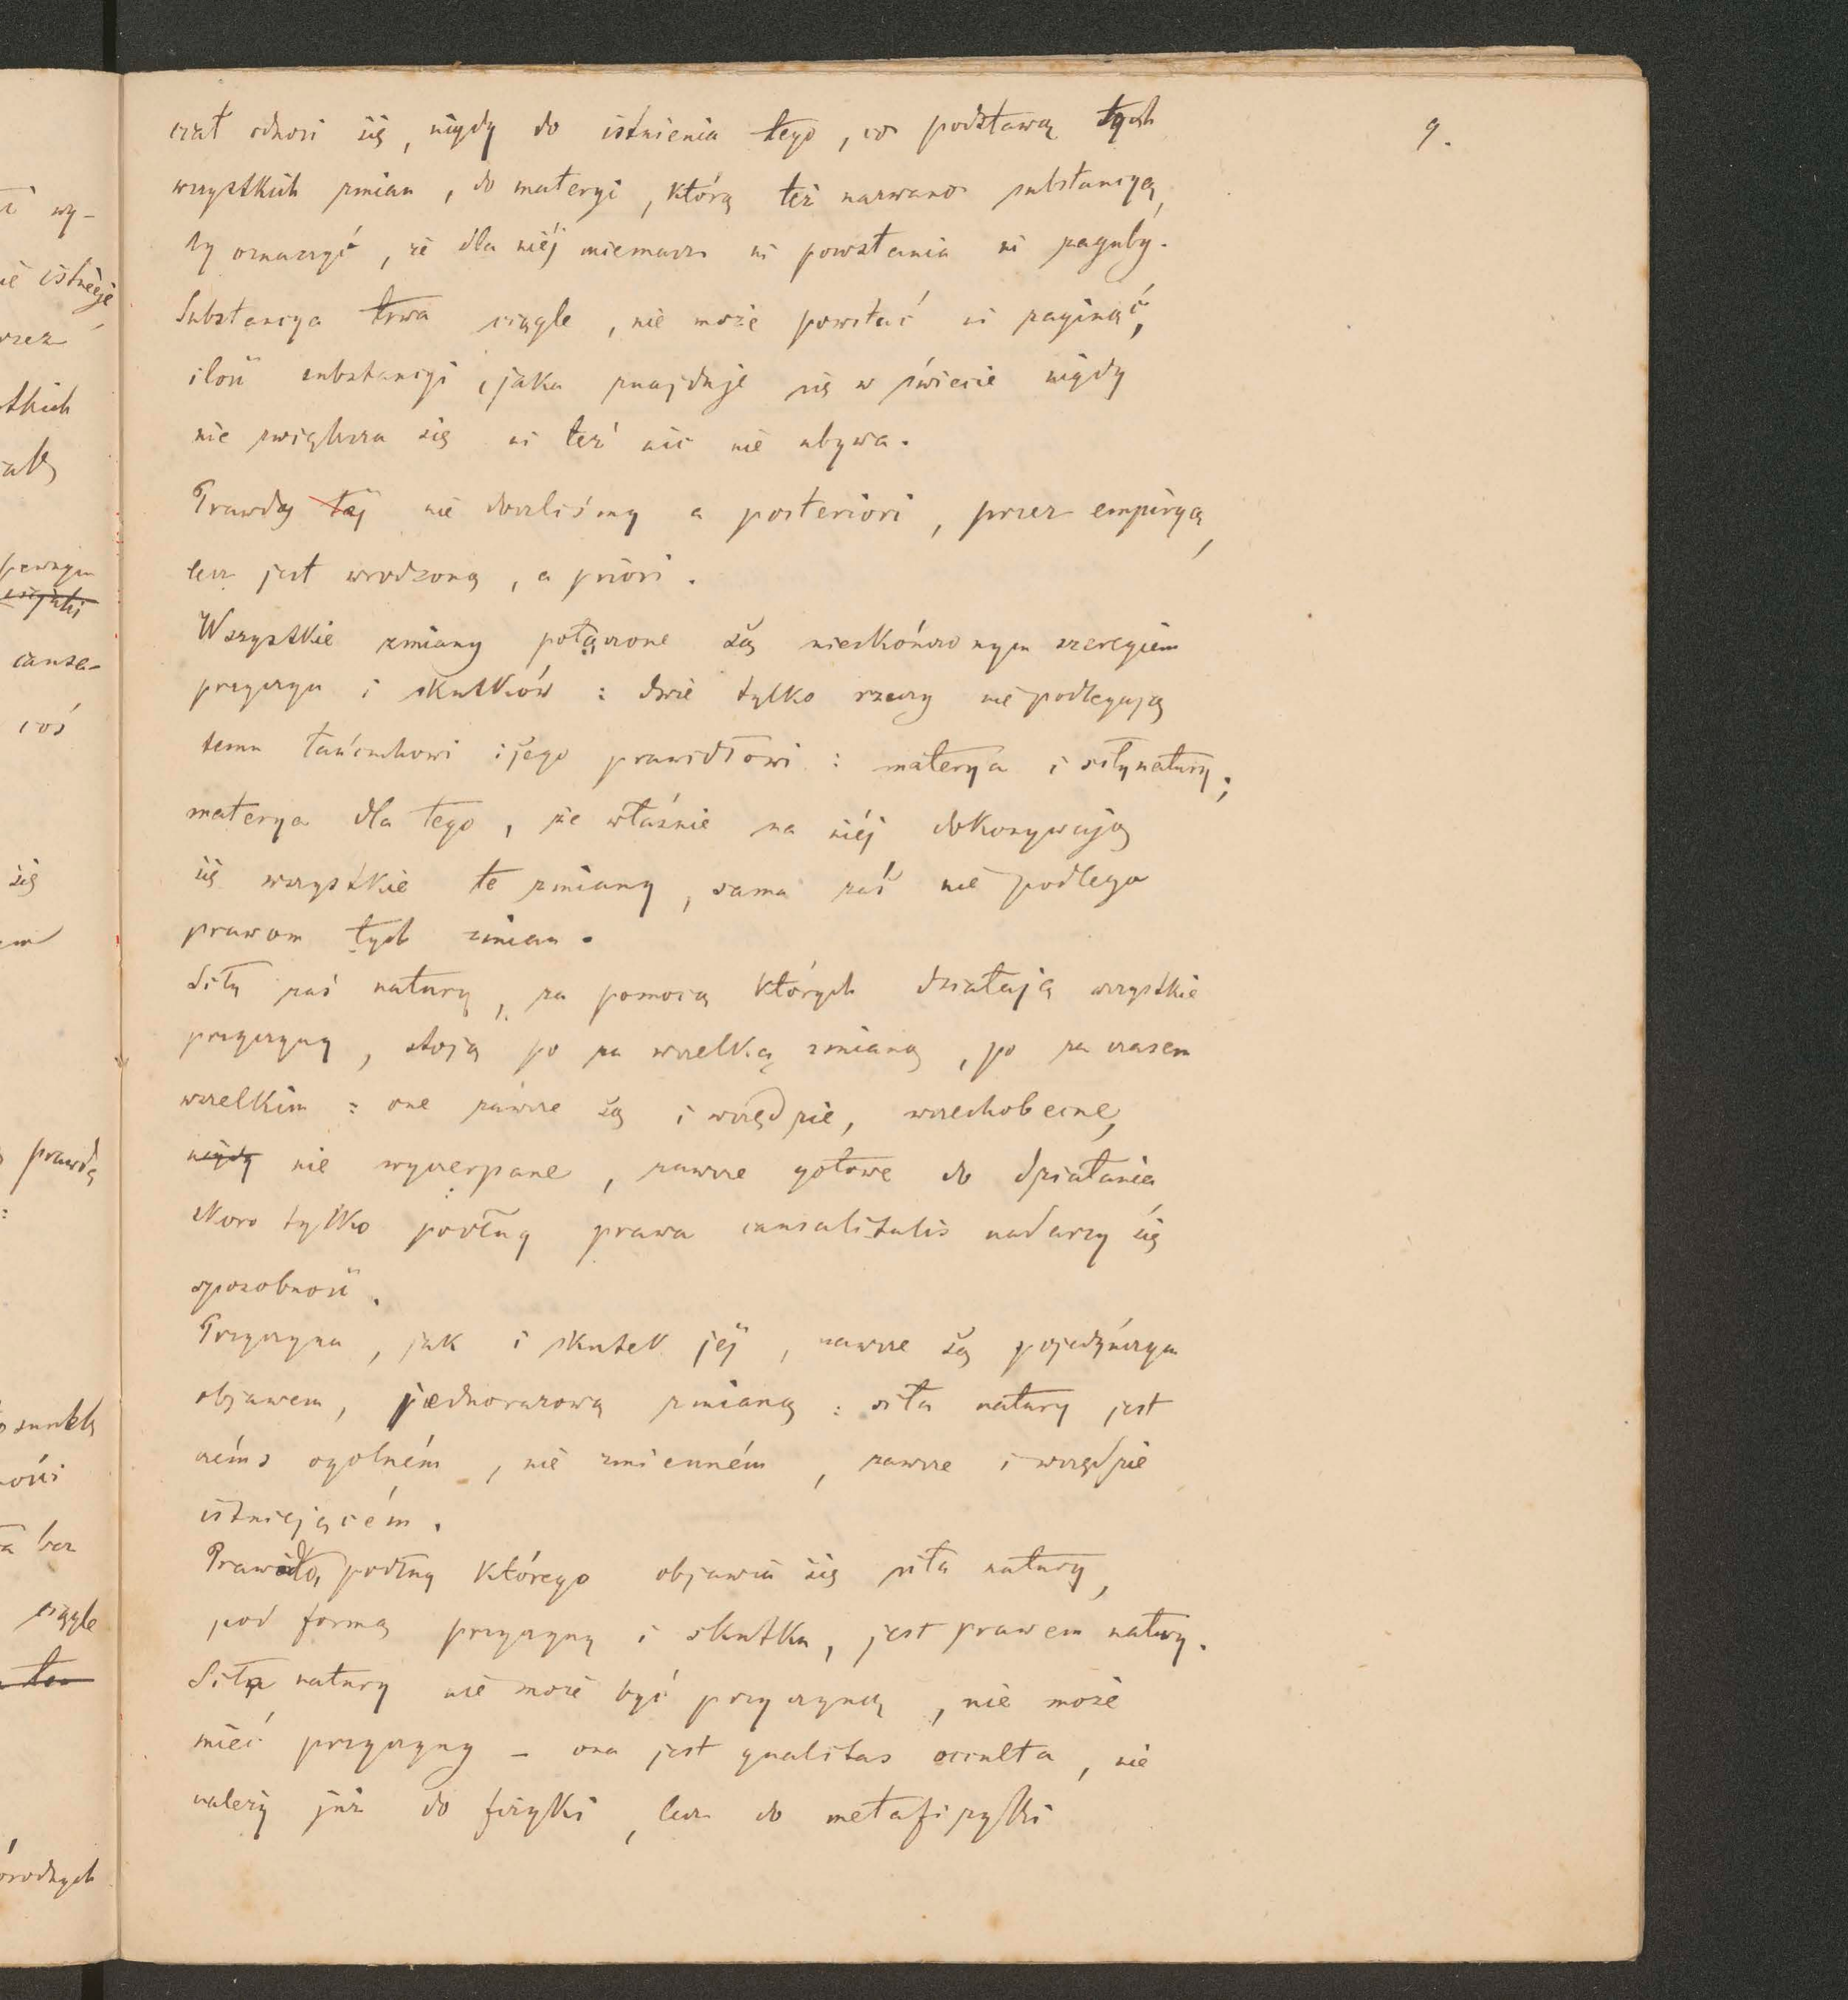 9.
czał odnosi się, nigdy do istnienia tego, co podstawą tych
wszystkich zmian, do materyi, którą też nazwano substancyą,
by oznaczyć, że dla niéj niemasz ni powstania ni zaguby.
Substancya trwa ciągle, nie może powstać ni zaginąć,
ilość substancyi, jaka znajduje się w świecie nigdy
nie zwiększa się ni też nic nie ubywa.
Prawdy téj nie doszliśmy a posteriori, przez empiryą,
lecz jest wrodzoną, a priori.
Wszystkie zmiany połączone są nieskończonym szeregiem
przyczyn i skutków: dwie tylko rzeczy nie podlegają
temu łańcuchowi i jego prawidłowi: materya i siły natury;
materya dla tego, że właśnie na niéj dokonywają
się wszystkie te zmiany, sama zaś nie podlega
prawom tych zmian.
Siły zaś natury, za pomocą których działają wszystkie
przyczyny, stoją po za wszelką zmianą, po za czasem
wszelkim: one zawsze są i wszędzie, wszechobecne,
nigdy nie wyczerpane, zawsze gotowe do działania
skoro tylko podług prawa causalitatis nadarzy się
sposobność.
Przyczyna, jak i skutek jéj, zawsze są pojedyńczym
objawem, jednorazową zmianą: siła natury jest
czéms ogolném, nie zmienném, zawsze i wszędzie
istniejącém.
Prawidło, podług którego objawia się siła natury,
pod formą przyczyny i skutku, jest prawem natury.
Siła natury nie może być przyczyną, nie może
mieć przyczyny – ona jest qualitas occulta, nie
należy już do fizyki, lecz do metafizyki